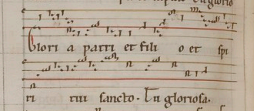 in glorio
Glori a patri et fili o et spi
ri tui sancto. In gloriosa.